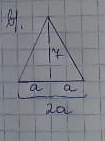 b).
7
a a
2a